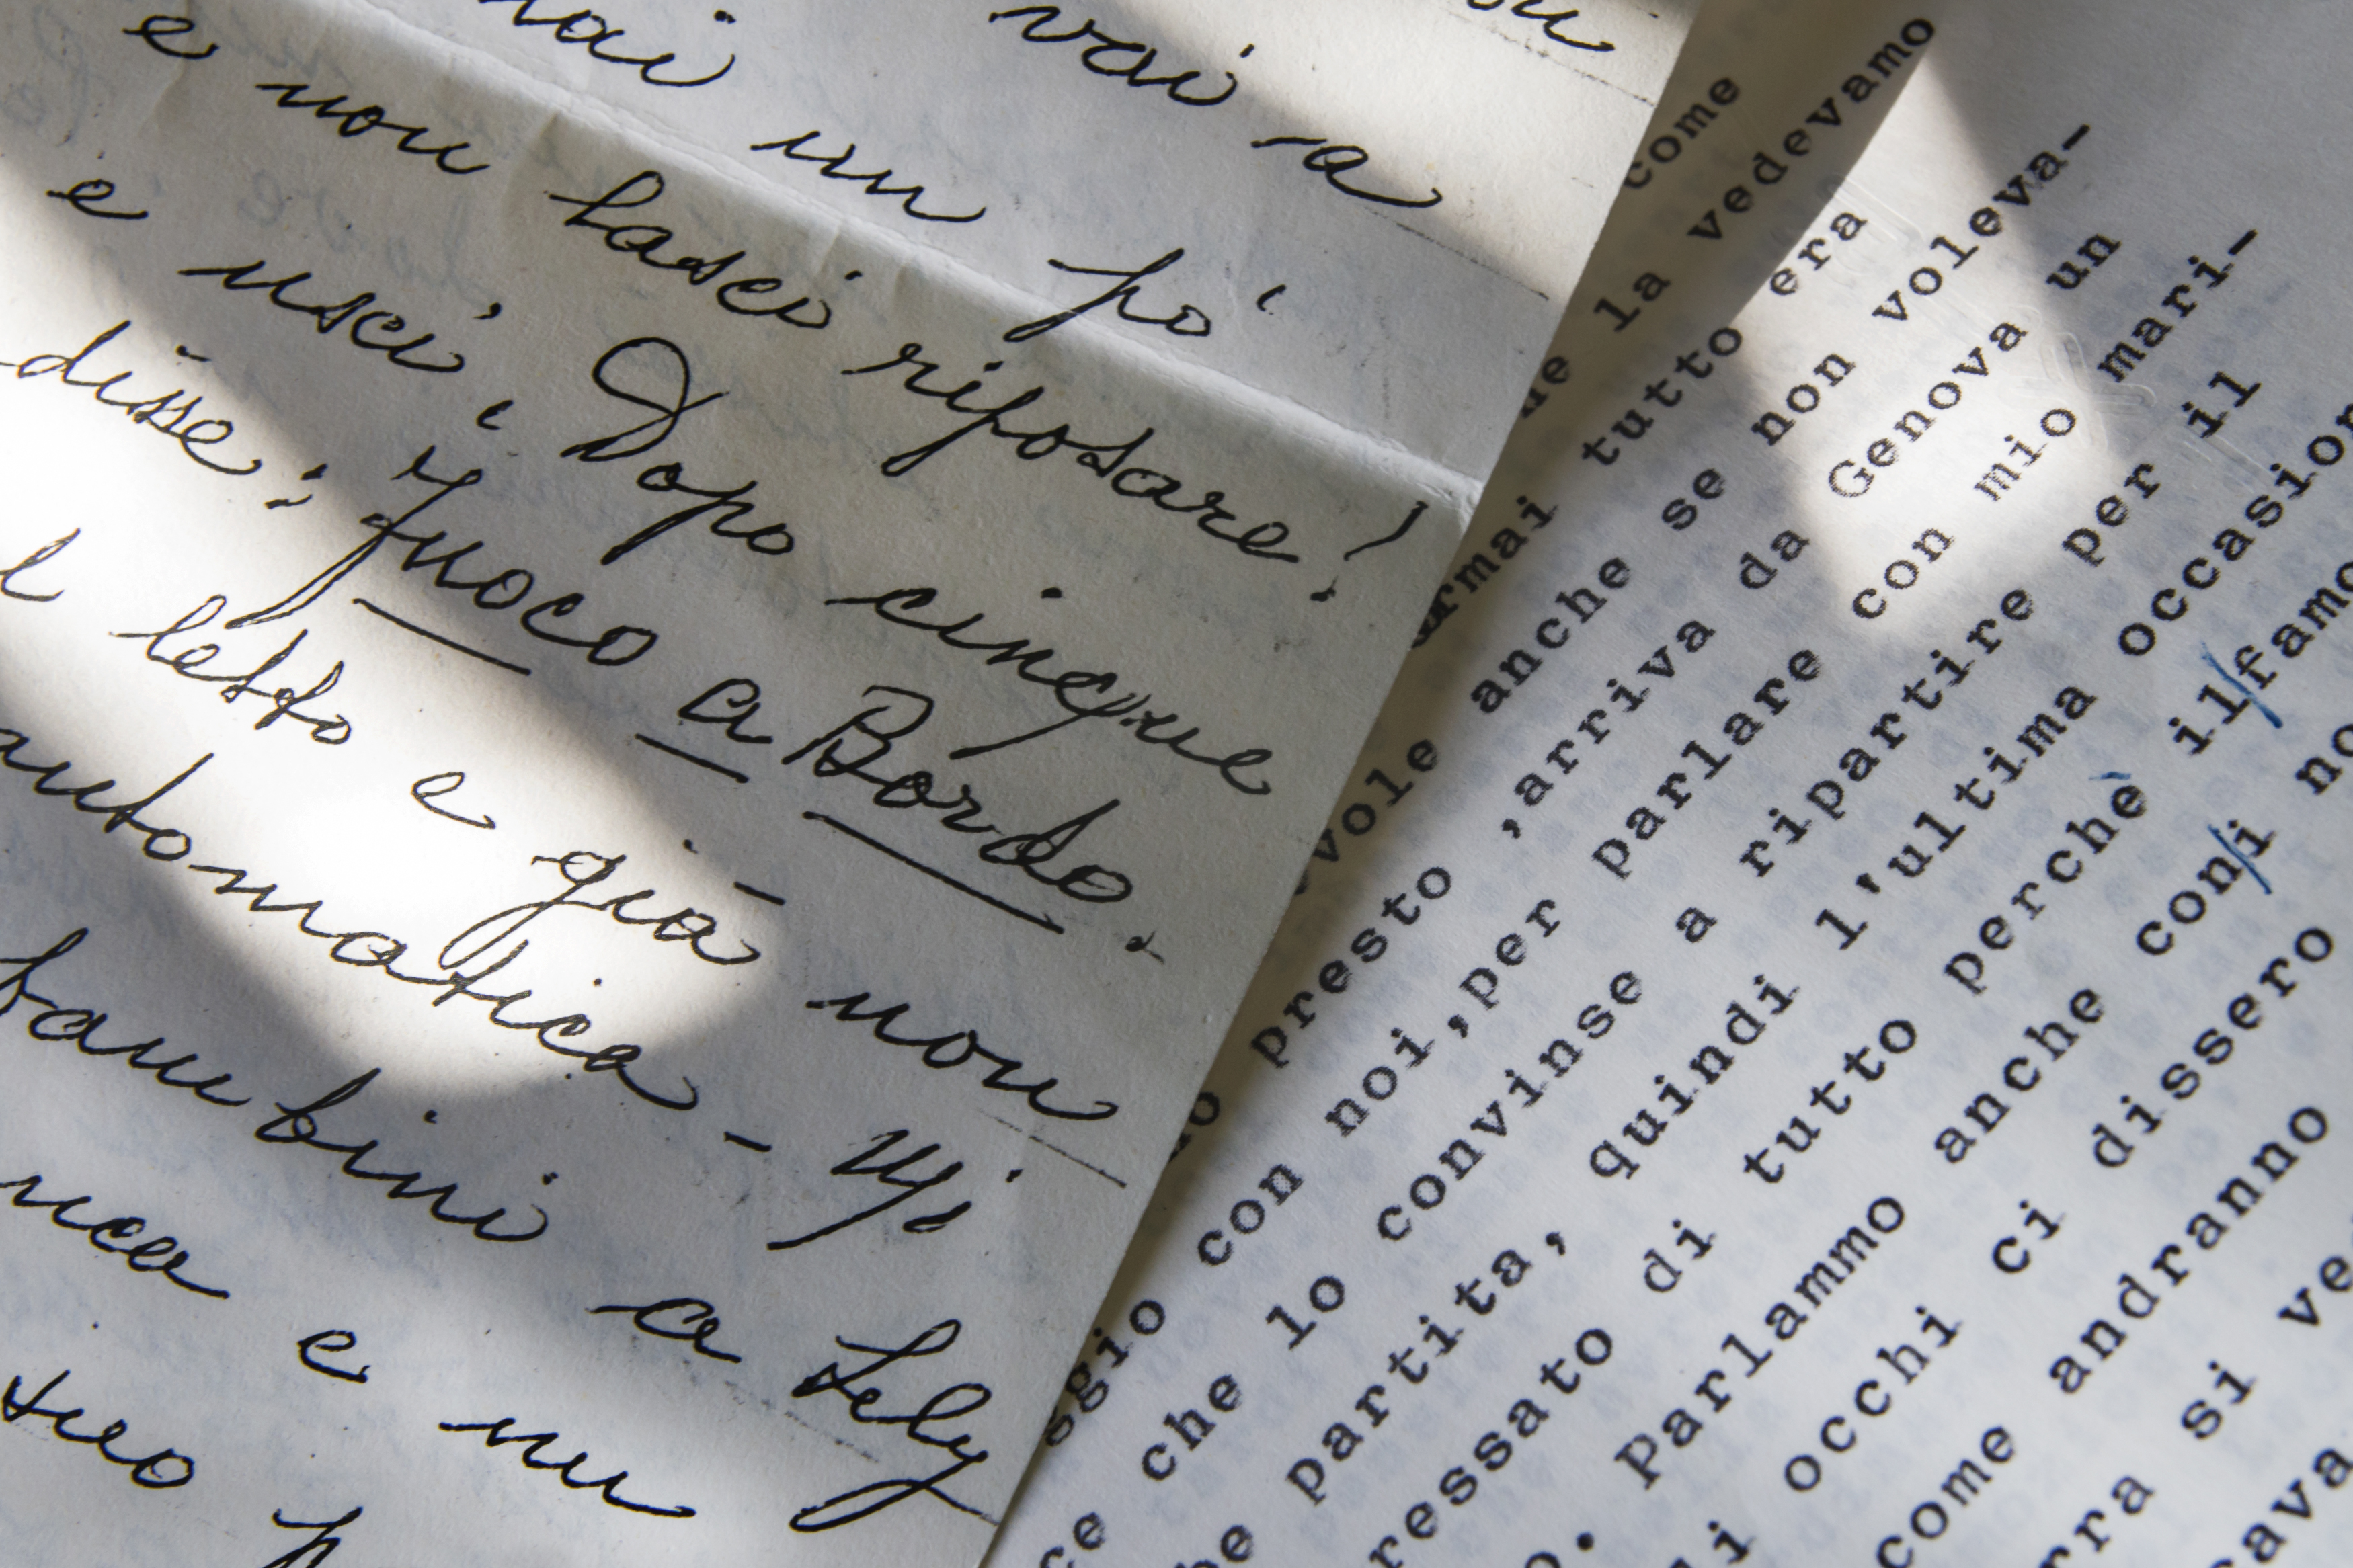 vai a
mai un po'
e non lasci riposare!
e uscì. Dopo cinque
disse: Fuoco a Bordo.
letto e già non
automatica - Mi
bambini a Lely
e un
come
la vedevamo
ormai tutto era
vole anche se non voleva-
presto ,arriva da Genova un
ggio con noi,per parlare con mio mari-
ce che lo convinse a ripartire per il
be partita, quindi l'ultima occasion
ressato di tutto perchè il/famo
o. Parlammo anche con/i no
li occhi ci dissero
come andranno
rra si ve
cava